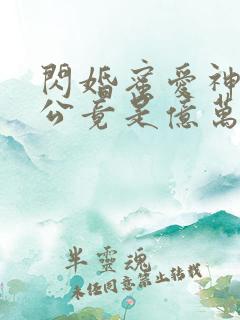 閃婚蜜愛神
公竟是億萬
半靈魂
未經同意禁止轉載